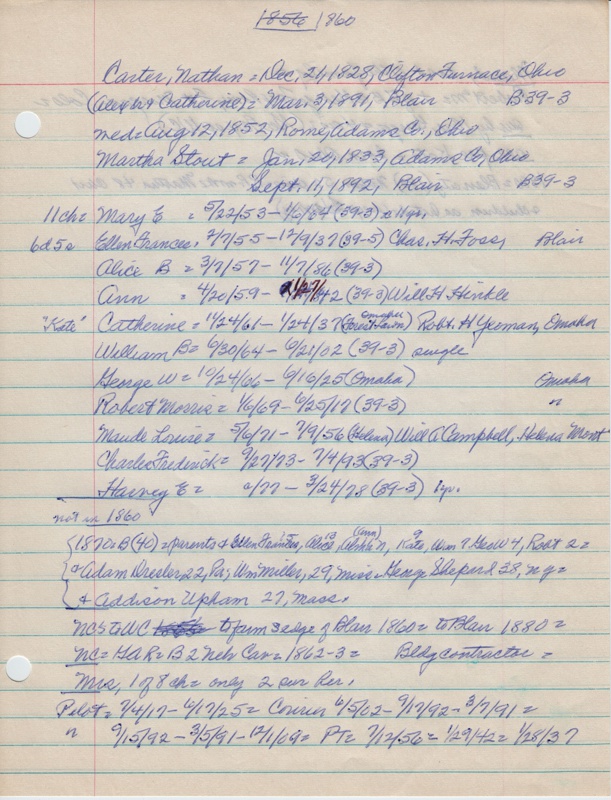 1856 1860
Carter, Nathan = Dec, 21, 1828, Clifton Furnace, Ohio
& Catherine) = Mar. 3, 1891, Blair B39-3
med = Aug 12, 1852, Rome, Adams Co., Ohio
Martha Stout = Jan, 20, 1833, Adams Co, Ohio
Sept. 11, 1892, Blair B39-3
11 ch = Mary E = 5/22/53 - (39-3)
6d 5s Ellen Frances, 2/7/55 - 12/9/37 (39-5) Chas. H. Foss, Blair
Alice B = 3/7/57 - 11/7/86 (39-3)
Ann = 4/20/59 - 42 (39-3) Will H. Hinkle
"Kate" Catherine = 11/24/61 - 1/24/37 (Omaha Forest Lawn) Robt. H Yeoman, Omaha
William B = 6/30/64 - 6/21/02 (39-3) single
George W = 10/24/66 - 6/16/25 (Omaha) Omaha
Robert Morris = 1/6/69 - 6/25/17 (39-3) "
Maude Louise = 5/6/71 - 7/9/56 (Helena) Will A Campbell, Helena Mont
Charles Fredrick = 9/27/73 - 7/4/93 (39-3)
Harvey E = /77 - 3/24/78 (39-3) 1yr.
not in 1860
1870 = B (40) = parents & Ellen Frances, Alice, (Ann) Kate, 9 Wm 7 Geo W 4, Robt 2 =
& Adam Dresler, 22, Pa; Wm Miller, 29, Miss = George Sheperd 38, n.y =
& Addison Upham 27, Mass.
NCS to WC to farm S edge of Blair 1860 = to Blair 1880 =
NC = GAR = B 2 Neb Cav = 1862-3 = Bldg contractor =
Mrs, 1 of 8 ch = only 2 sur Rev.
Pilot = 7/4/17 - 6/17/25 = Courier 6/5/02 - 9/17/92 - 3/7/91 =
" 9/15/92 - 3/5/91 - 12/1/09 = PT = 7/12/56 = 1/29/42 = 1/28/37